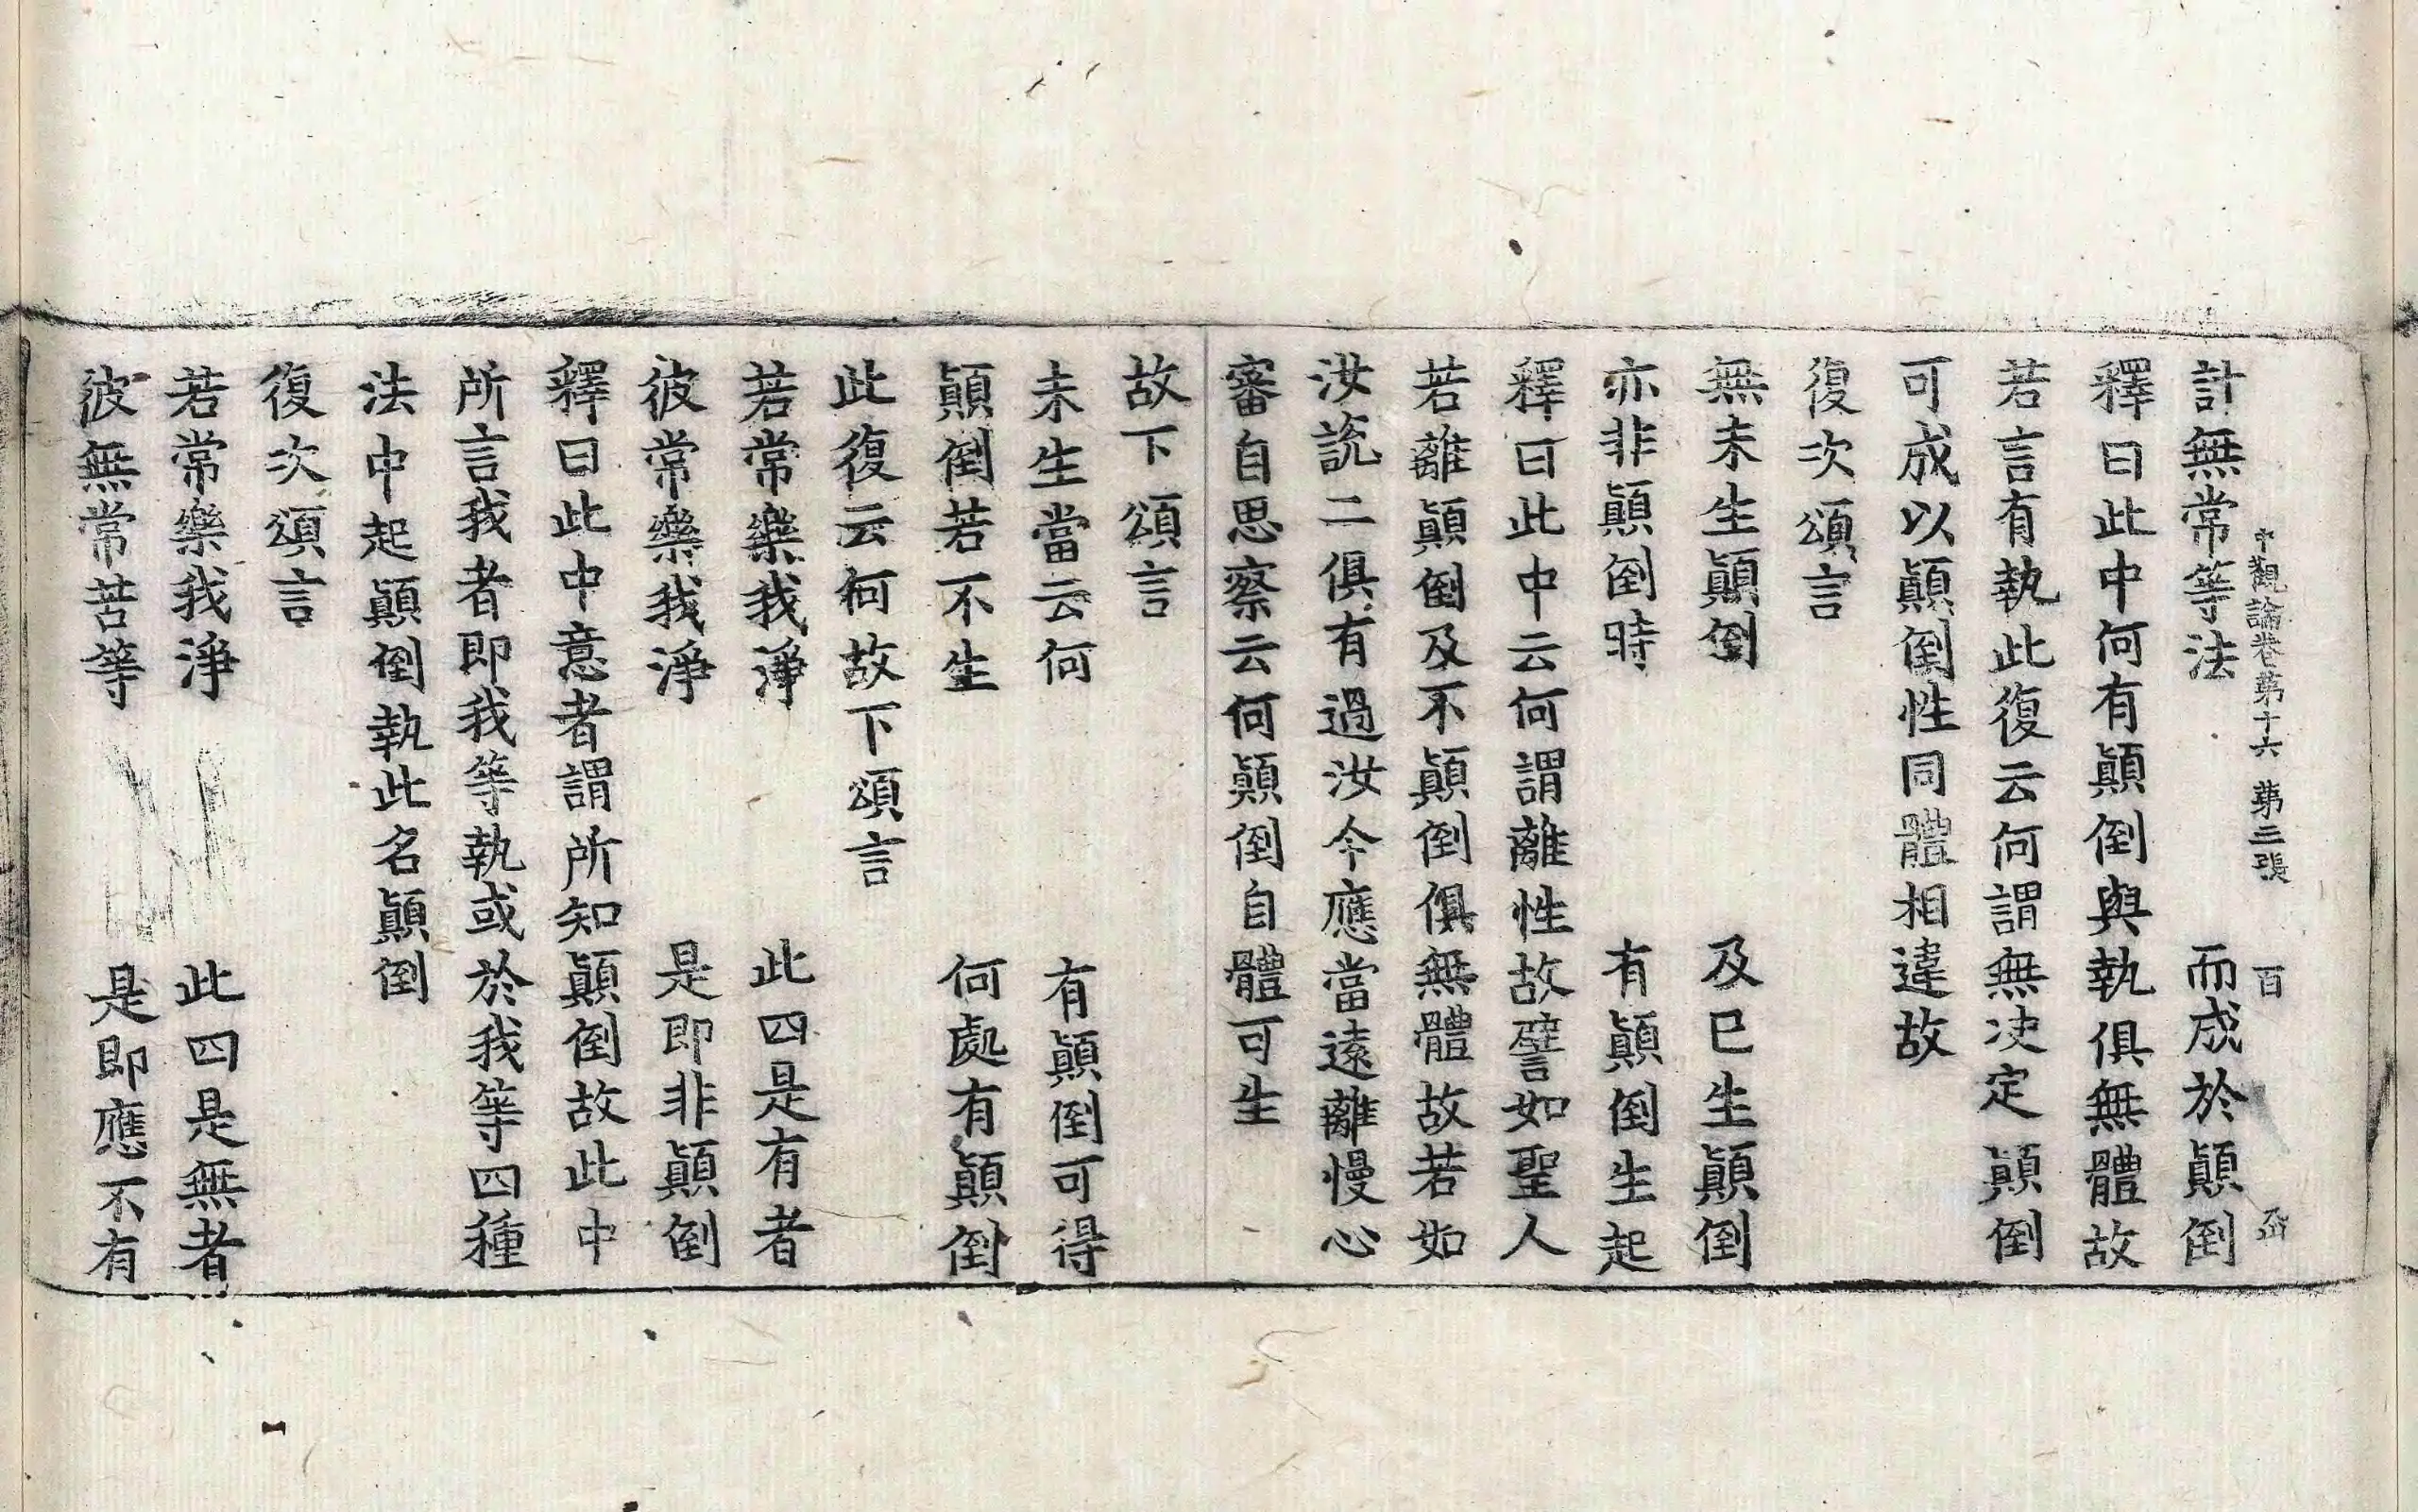 中觀論卷第十六 第三張 百
計無常等法 而成於顛倒
釋曰此中何有顛倒與執俱無體故
若言有執此復云何謂無决定顛倒
可成以顛倒性同體相違故
復次頌言
無未生顛倒 及已生顛倒
亦非顛倒時 有顛倒生起
釋曰此中云何謂離性故譬如聖人
若離顛倒及不顛倒俱無體故若如
汝說二俱有過汝今應當遠離慢心
審自思察云何顛倒自體可生
故下頌言
未生當云何 有顛倒可得
顛倒若不生 何處有顛倒
此復云何故下頌言
若常樂我淨 此四是有者
彼常樂我淨 是即非顛倒
釋曰此中意者謂所知顛倒故此中
所言我者即我等執或於我等四種
法中起顛倒執此名顛倒
復次頌言
若常樂我淨 此四是無者
彼無常苦等 是即應不有